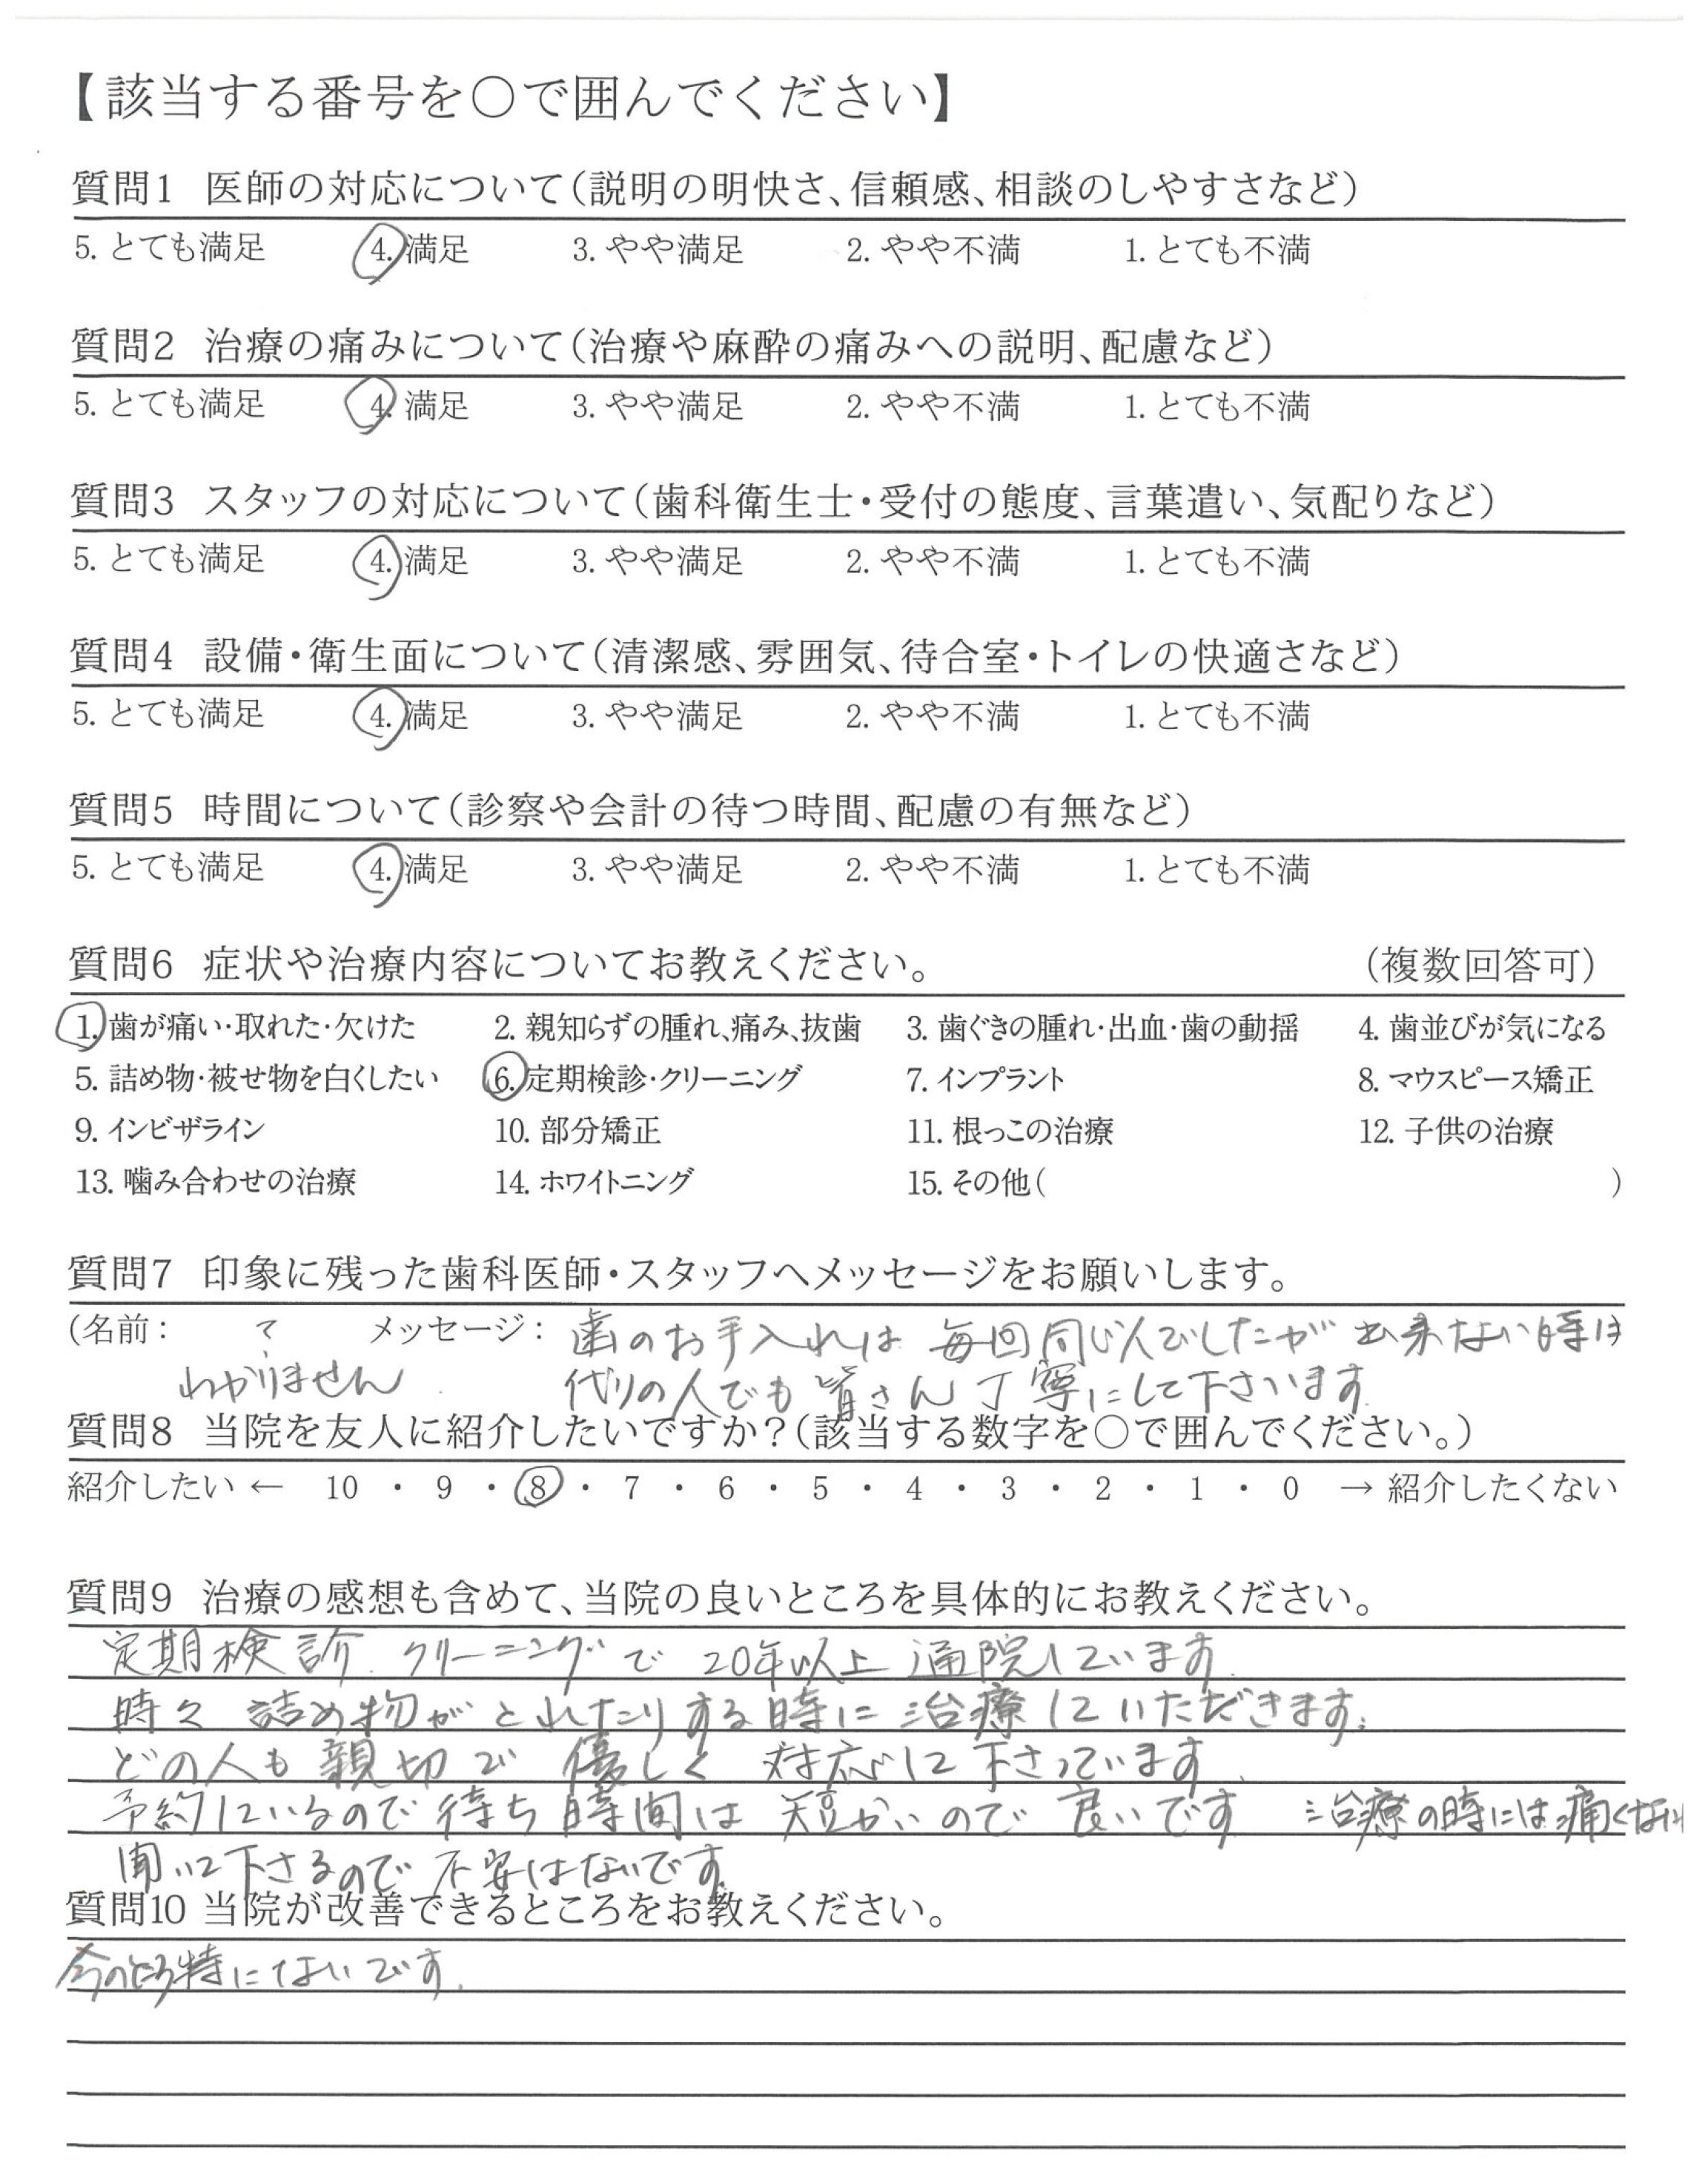 【該当する番号を○で囲んでください】
質問1 医師の対応について(説明の明快さ、信頼感、相談のしやすさなど)
5. とても満足 4. 満足 3. やや満足 2. やや不満 1. とても不満
質問2 治療の痛みについて(治療や麻酔の痛みへの説明、配慮など)
5. とても満足 4. 満足 3. やや満足 2. やや不満 1. とても不満
質問3 スタッフの対応について(歯科衛生士・受付の態度、言葉遣い、気配りなど)
5. とても満足 4. 満足 3. やや満足 2. やや不満 1. とても不満
質問4 設備・衛生面について(清潔感、雰囲気、待合室・トイレの快適さなど)
5. とても満足 4. 満足 3. やや満足 2. やや不満 1. とても不満
質問5 時間について(診察や会計の待つ時間、配慮の有無など)
5. とても満足 4. 満足 3. やや満足 2. やや不満 1. とても不満
質問6 症状や治療内容についてお教えください。 (複数回答可)
1. 歯が痛い・取れた・欠けた 2. 親知らずの腫れ、痛み、抜歯 3. 歯ぐきの腫れ・出血・歯の動揺 4. 歯並びが気になる
5. 詰め物・被せ物を白くしたい 6. 定期検診・クリーニング 7. インプラント 8. マウスピース矯正
9. インビザライン 10. 部分矯正 11. 根っこの治療 12. 子供の治療
13. 噛み合わせの治療 14. ホワイトニング 15. その他( )
質問7 印象に残った歯科医師・スタッフへメッセージをお願いします。
(名前: ? メッセージ: 歯のお手入れは 毎回同じ人でしたが 出来ない時は
わかりません 代りの人でも 皆さん 丁寧にして下さいます
質問8 当院を友人に紹介したいですか?(該当する数字を○で囲んでください。)
紹介したい ← 10 ・ 9 ・ 8 ・ 7 ・ 6 ・ 5 ・ 4 ・ 3 ・ 2 ・ 1 ・ 0 → 紹介したくない
質問9 治療の感想も含めて、当院の良いところを具体的にお教えください。
定期検診 クリーニングで 20年以上 通院しています
時々 詰め物がとれたりする時に 治療していただきます。
どの人も 親切で 優しく 対応して下さっています
予約しているので待ち時間は 短かいので 良いです 治療の時には痛くないか
聞いて下さるので 不安はないです
質問10 当院が改善できるところをお教えください。
今のところ特にないです.